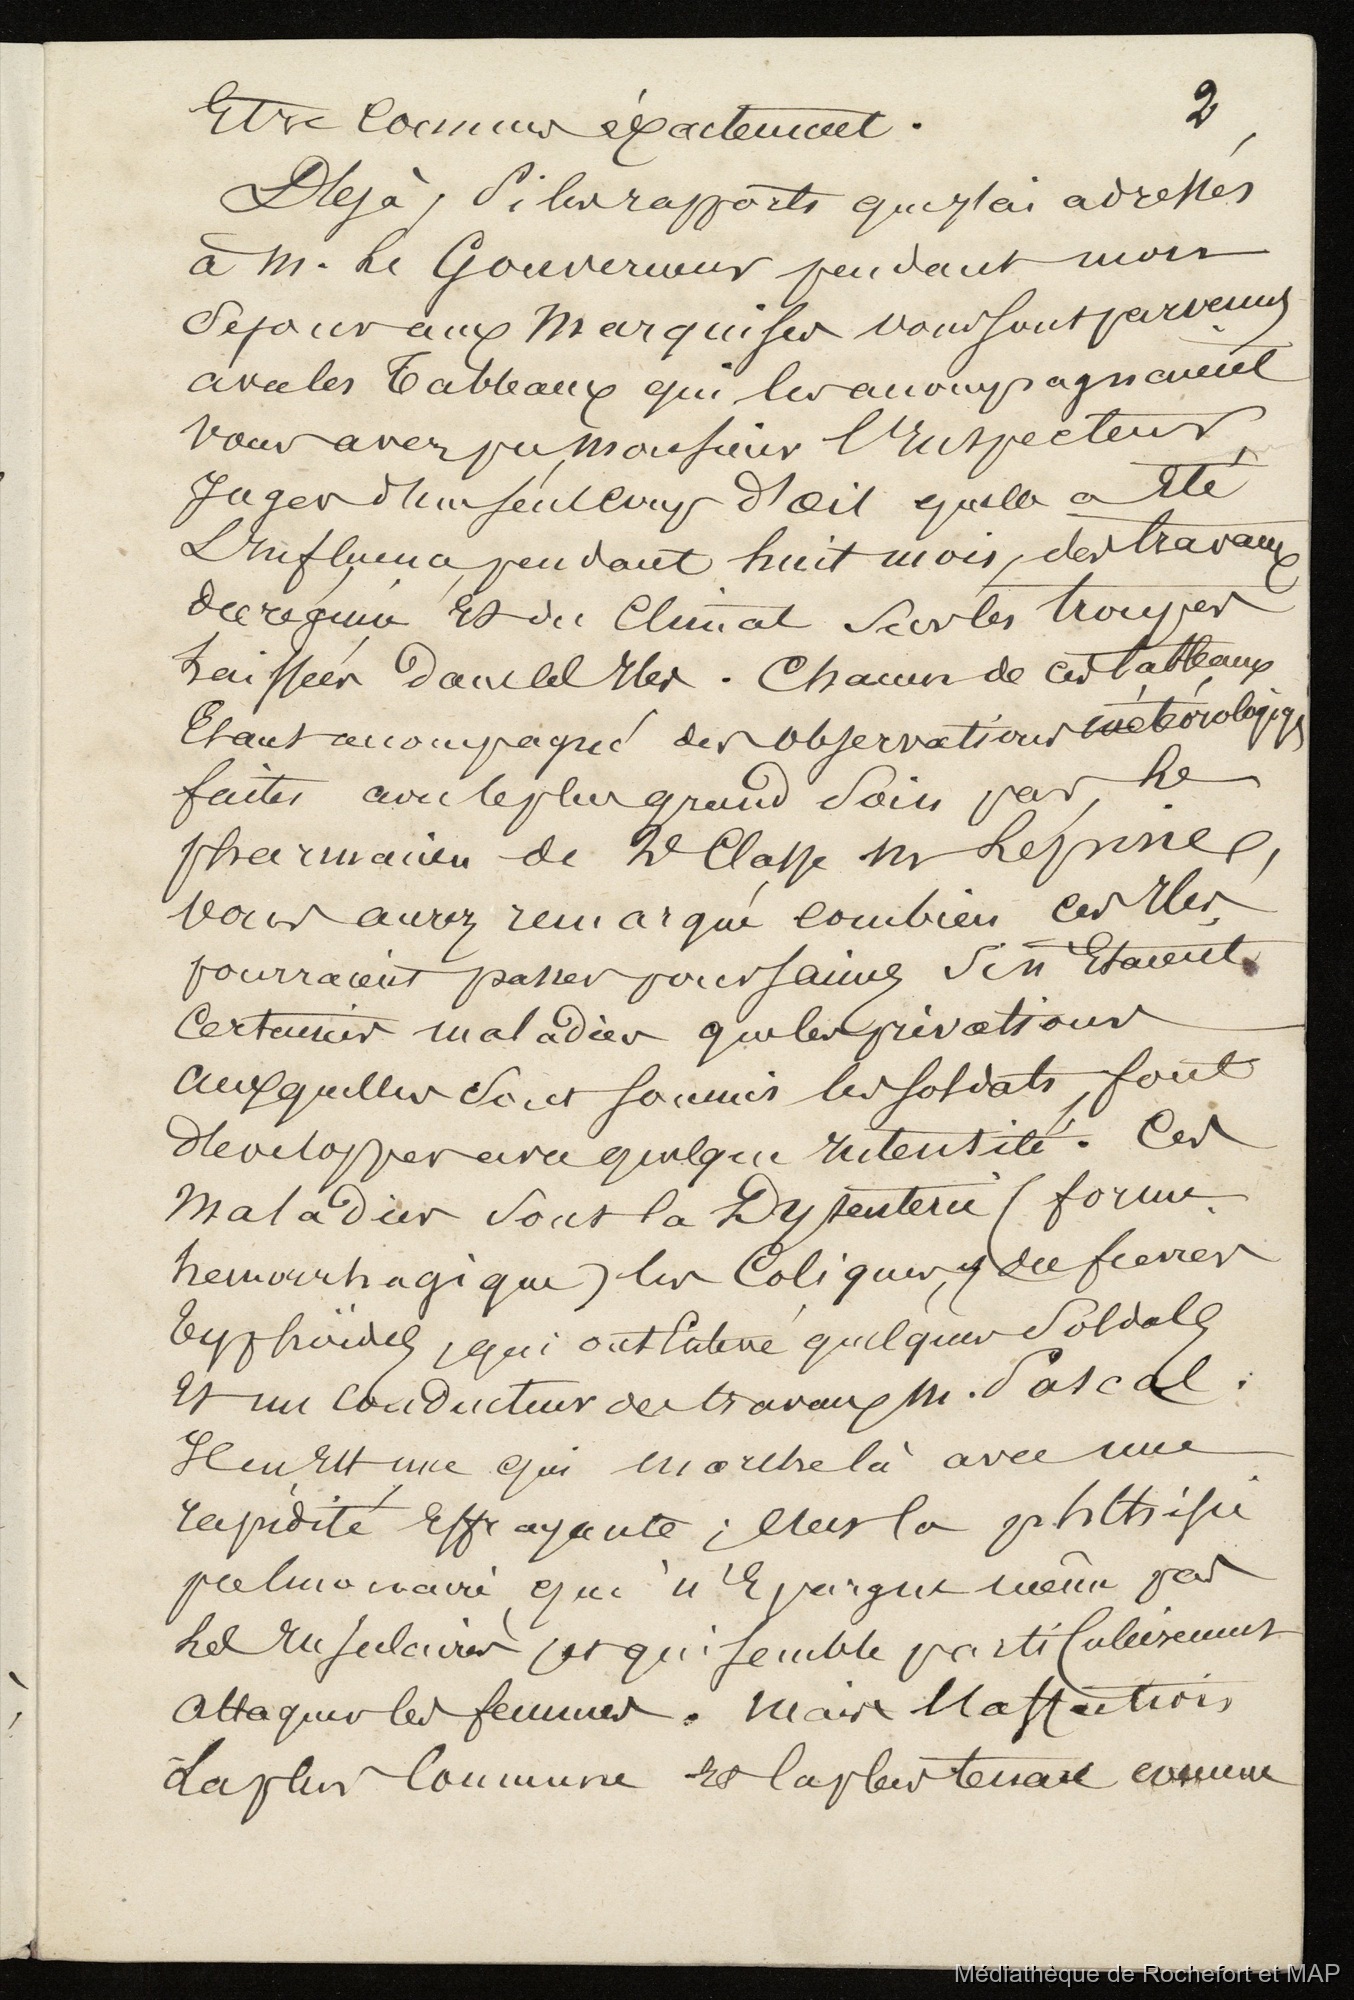 2
Etre Connus éxactement.
Dejà, Si les rapports que j'ai adressés
à M. Le Gouverneur pendant mon
Sejour aux Marquises vous sont parvenus
avec les Tableaux qui les accompagnaient
vous avez pu, Monsieur l'Inspecteur,
Juger d'un seul coup d'œil quelle a Eté
L'Influence, pendant huit mois, des travaux
du régime Et du Climat Sur les troupes
Laissées dans les Iles. Chacun de ces tableaux
Etant accompagné des observations météorologiqs
faites avec le plus grand Soin par Le
pharmacien de 2e Classe Mr Lépine,
vous aurez remarqué combien ces Iles
pourraient passer pour saines Si n'Etaient
Certaines maladies que les privations
auxquelles Sont soumis les soldats, font
développer avec quelque Intensité. Ces
Maladies Sont la Dyssenterie (forme
hemorrhagique) les Coliques, & des fievres
Typhoïdes, qui ont Enlevé quelques Soldats
Et un Conducteur des travaux M. Pascal.
Il en Est une qui marche là avec une
rapidité Effrayante; C'est la phthisie
pulmonaire que n'Epargne même pas
Les Insulaires, et qui semble particulièrement
attaquer les femmes. Mais l'affection
La plus Commune Et la plus tenace comme
Médiathèque de Rochefort et MAP